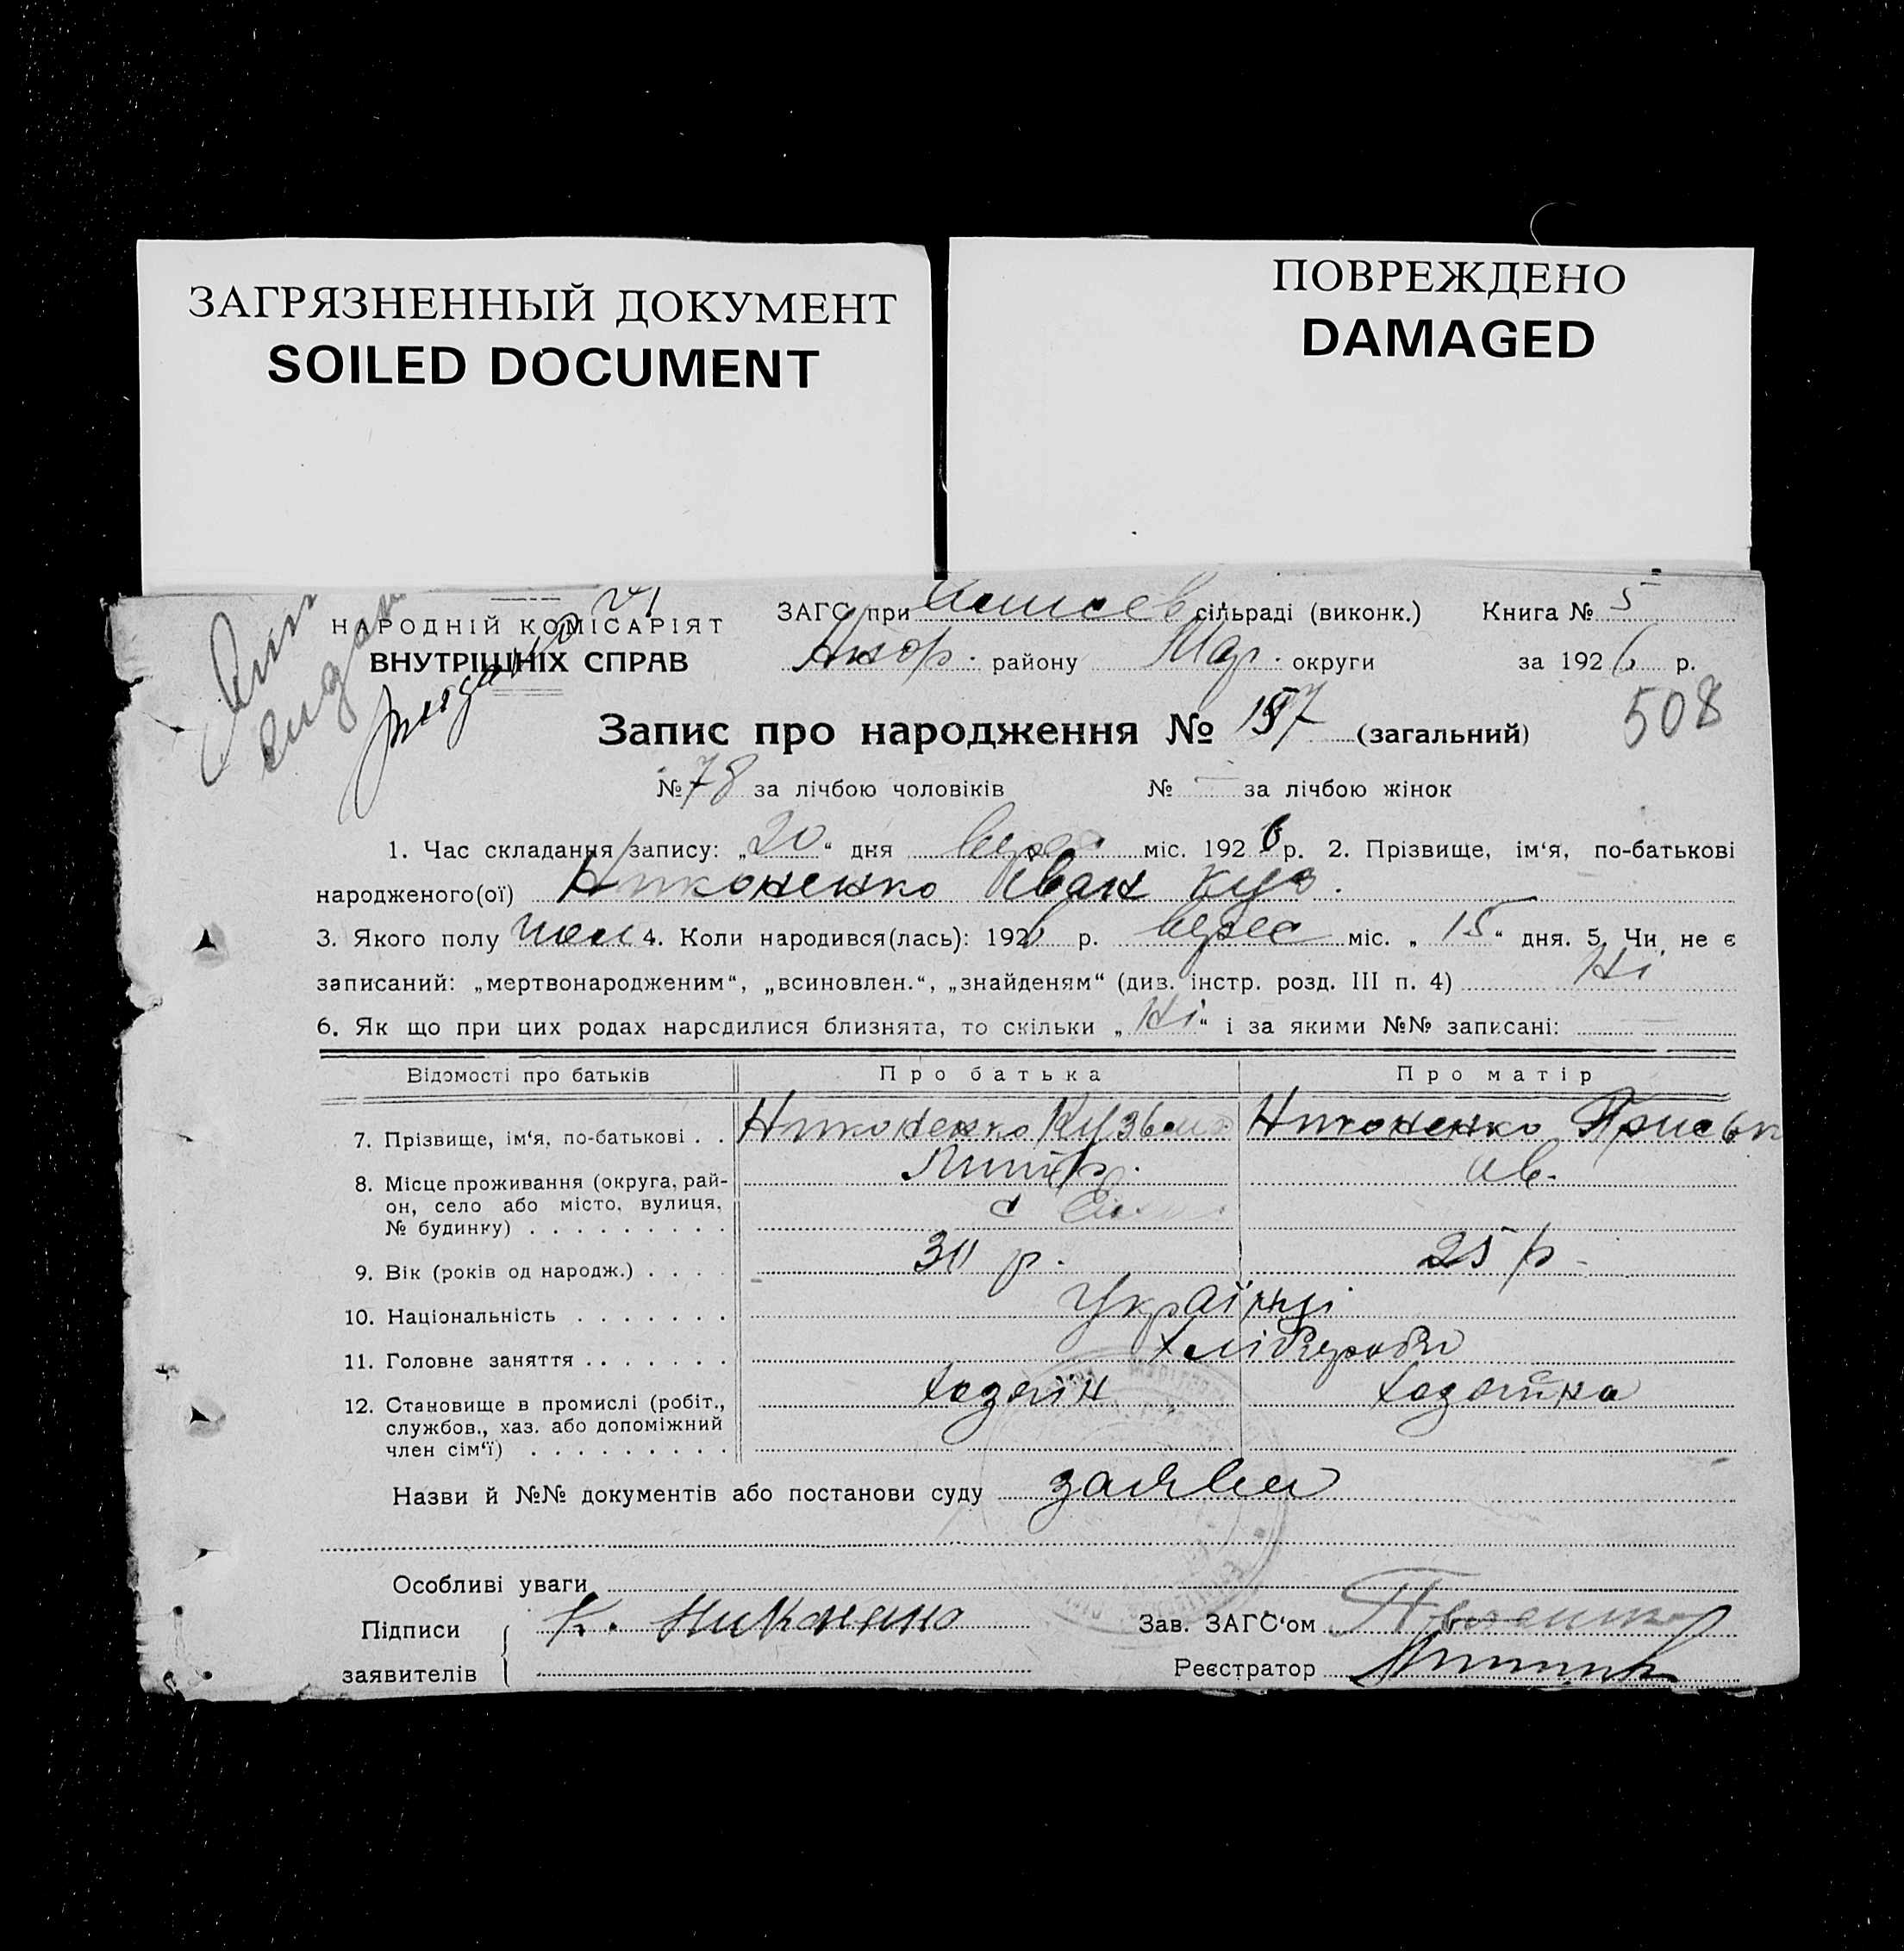 ЗАГРЯЗНЕННЫЙ ДОКУМЕНТ
SOILED DOCUMENT
ПОВРЕЖДЕНО
DAMAGED
НАРОДНІЙ КОМІСАРІЯТ
ВНУТРІШНІХ СПРАВ
ЗАГС при сільраді (виконк.) Книга № 5
району Мар. округи за 1926 р.
508
Запис про народження № 157 (загальний)
№ 78 за лічбою чоловіків № — за лічбою жінок
1. Час складання запису: „20“ дня верес міс. 1926 р. 2. Прізвище, ім'я, по-батькові
народженого(ої) Никоненко Іван Куз.
3. Якого полу чол 4. Коли народився(лась): 1926 р. верес міс. „15“ дня. 5. Чи не є
записаний: „мертвонародженим“, „всиновлен.“, „знайденям“ (див. інстр. розд. III п. 4) Ні
6. Як що при цих родах народилися близнята, то скільки „Ні“ і за якими №№ записані: —
Відомості про батьків Про батька Про матір
7. Прізвище, ім'я, по-батькові . . Никоненко Кузьма Никоненко Приська
8. Місце проживання (округа, рай- ав.
он, село або місто, вулиця, с
№ будинку) . . . . . . . . .
9. Вік (років од народж.) . . . . р. 25 р.
10. Національність . . . . . . . Українці
11. Головне заняття . . . . . . . хлібороби
12. Становище в промислі (робіт., хазяїн хазяйка
службов., хаз. або допоміжний
член сім'ї) . . . . . . . . .
Назви й №№ документів або постанови суду заяви
Особливі уваги
Підписи К. Никоненко Зав. ЗАГС'ом
заявителів Реєстратор